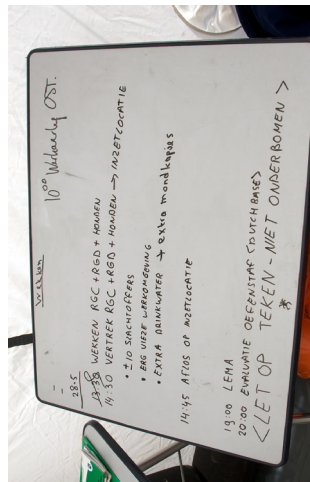 Wekken
28-5
13:30 WEKKEN RGC + RGD + HONDEN
14:30 VERTREK RGC + RGD + HONDEN → INZETLOCATIE
• ±10 SLACHTOFFERS
• ERG VIEZE WERKOMGEVING
• EXTRA DRINKWATER → extra mondkapjes
14:45 AFLOS OP INZETLOCATIE
19:00 LEMA
20:00 EVALUATIE OEFENSTAF <DUTCHBASE>
<LET OP TEKEN-NIET ONDERBOMEN>